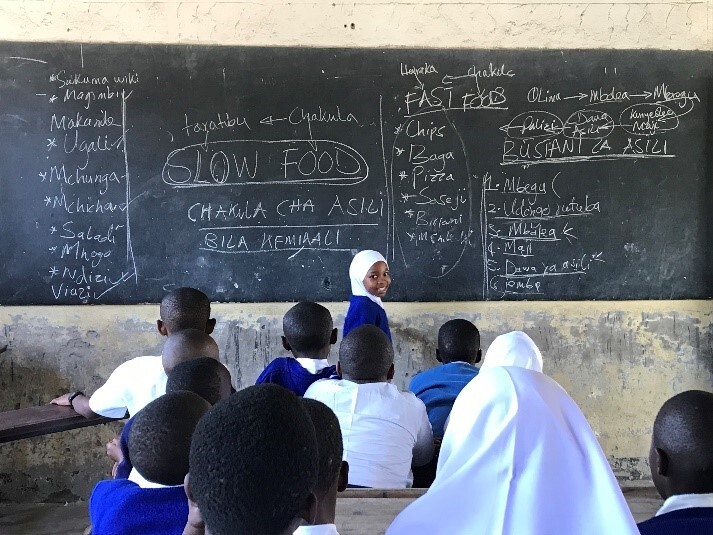 * Sukuma wiki
* Magimbi
Makande
* Ugali
* Mchunga
* Mchicha
* Saladi
* Mhogo
* Ndizi
Viazi
taratibu ← Chakula
SLOW FOOD
CHAKULA CHA ASILI
BILA KEMIKALI
Haraka chakula
FAST FOODS
* Chips
* Baga
* Pizza
* Soseji
* Biriani
Olina → mbolea → Mbegu
Dawa Asili
BUSTANI ZA ASILI
1. Mbegu
2. Udongo rutuba
3. Mbolea
4. Maji
5. Dawa ya asili
6. Jembe